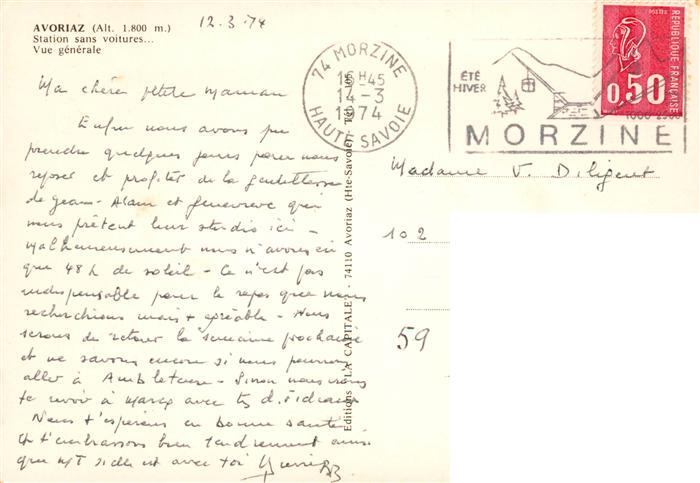 AVORIAZ (Alt. 1.800 m.)
Station sans voitures...
Vue générale
12.3.74
Ma chère petite Maman
Enfin nous avons pu
prendre quelques jours pour nous
reposer et profiter de la gentillesse
de Jean-Alain et Geneviève qui
nous prêtent leur studio ici -
Malheureusement nous n'avons eu
que 48 h de soleil - Ce n'est pas
indispensable pour le repos que nous
recherchions mais + agréable - Nous
serons de retour la semaine prochaine
et ne savons encore si nous pourrons
aller à Ambleteuse - Sinon nous irons
te voir à Marcq avec
Nous t'espérons en bonne santé
et t'embrassons bien tendrement ainsi
que si elle est avec toi
Editions "LA CAPITALE" - 74110 Avoriaz (Hte-Savoie) Tél.
74 MORZINE
1 H45
14-3
1974
HAUTE SAVOIE
ÉTÉ
HIVER
MORZINE
POSTES
RÉPUBLIQUE FRANÇAISE
0,50
Madame V. Diligent
102
59